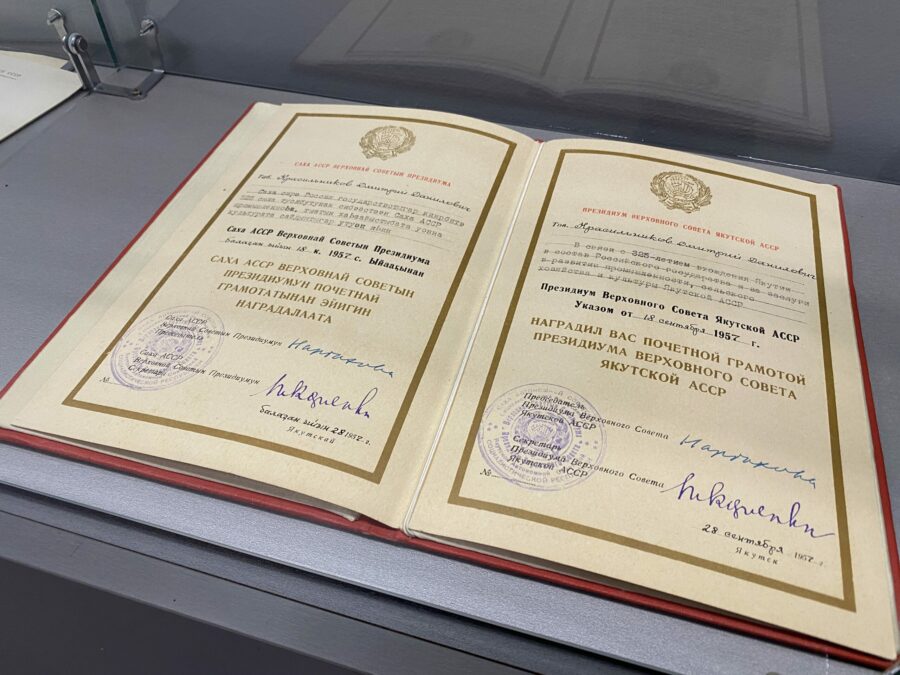 САХА АССР ВЕРХОВНАЙ СОВЕТЫН ПРЕЗИДИУМА
Тов. Красильников Дмитрий Данилович
Саха сирэ Россия государствотыгар киирбитэ
325 сыла туолуутунан сибээстээн Саха АССР
култуурата сайдыытыгар
Саха АССР Верховнай Советын Президиума
балаҕан ыйын 18 к. 1957 с. Ыйааҕынан
САХА АССР ВЕРХОВНАЙ СОВЕТЫН
ПРЕЗИДИУМУН ПОЧЕТНАЙ
ГРАМОТАТЫНАН ЭЙИГИН
НАГРАДАЛААТА
Саха АССР
Верховнай Советын Президиумун
Председателэ
Саха АССР
Верховнай Советын Президиумун
Секретарь
№
балаҕан ыйын 28 1957 г.
Якутскай
ПРЕЗИДИУМ ВЕРХОВНОГО СОВЕТА ЯКУТСКОЙ АССР
Тов. Красильников Дмитрий Данилович
В связи с 325-летием вхождения Якутии
в состав Российского государства и за заслуги
в развитии промышленности, сельского
хозяйства и культуры Якутской АССР
Президиум Верховного Совета Якутской АССР
Указом от 18 сентября 1957 г.
НАГРАДИЛ ВАС ПОЧЕТНОЙ ГРАМОТОЙ
ПРЕЗИДИУМА ВЕРХОВНОГО СОВЕТА
ЯКУТСКОЙ АССР
Председатель
Президиума Верховного Совета
Якутской АССР
Секретарь
Президиума Верховного Совета
Якутской АССР
№
28 сентября 1957 г.
Якутск